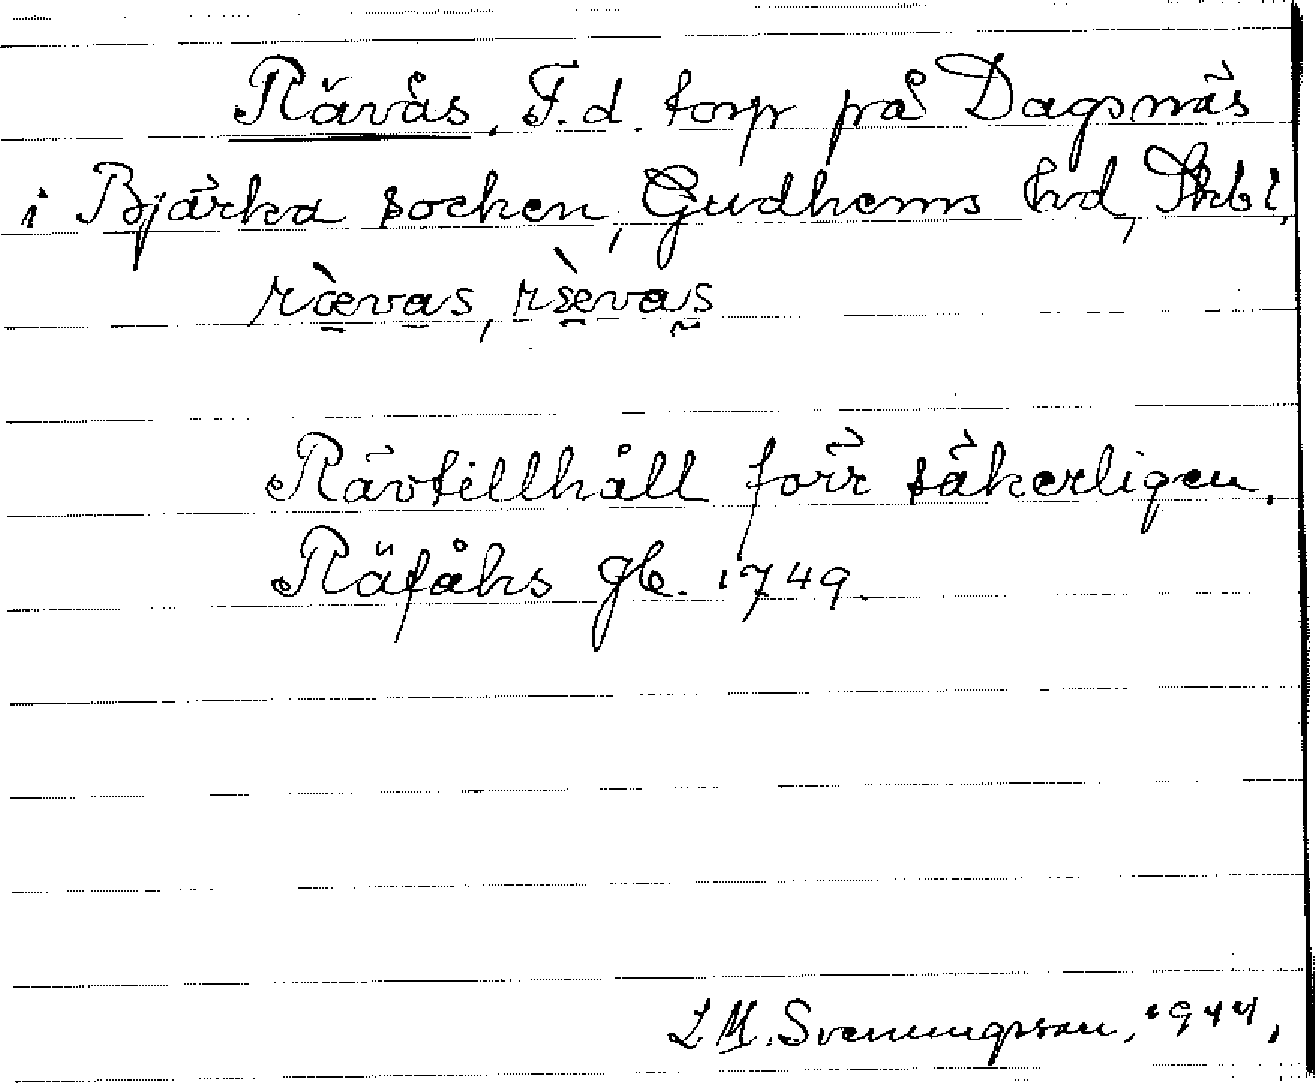 Rävås. F.d. torp på Dagsnäs
i Bjärka socken, Gudhems hd, Skbl,
rævas, rævas
Rävtillhåll förr säkerligen.
Räfåhs gb. 1749.
L M. Svenungsson, 1944,